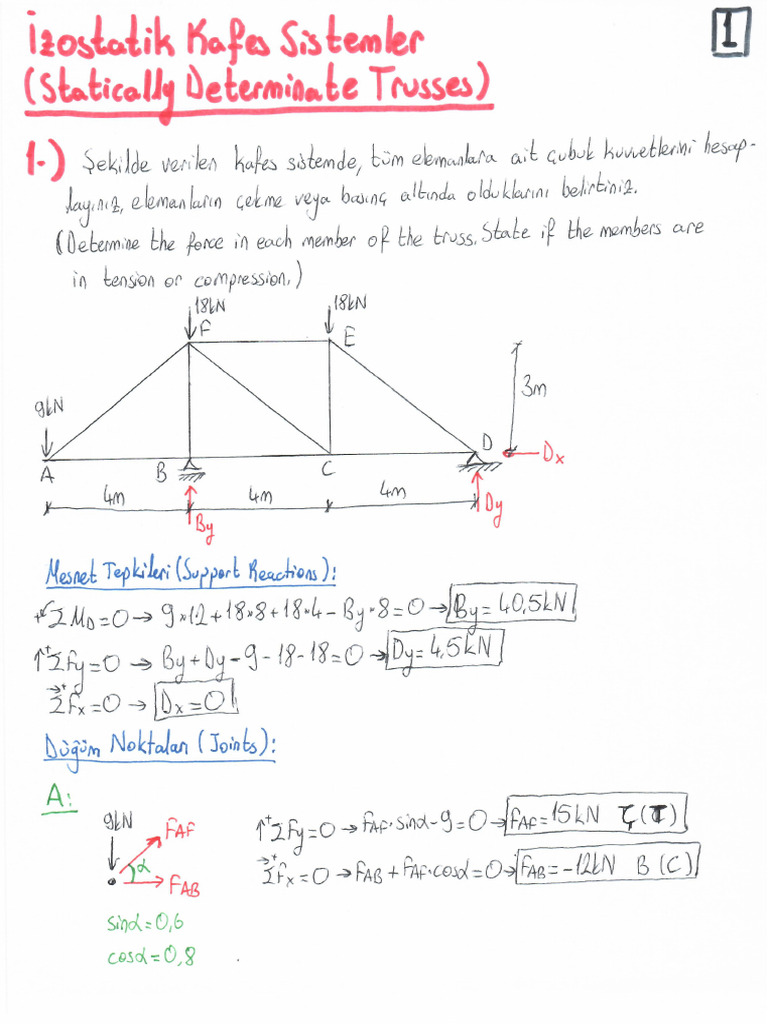 İzostatik Kafes Sistemler
1
(Statically Determinate Trusses)
1-) Şekilde verilen kafes sistemde, tüm elemanlara ait çubuk kuvvetlerini hesap-
layınız, elemanların çekme veya basınç altında olduklarını belirtiniz.
(Determine the force in each member of the truss. State if the members are
in tension or compression.)
18kN 18kN
F E
9kN
3m
A B C D Dx
4m 4m 4m
By Dy
Mesnet Tepkileri (Support Reactions):
+ΣM_D=0 → 9*12+18*8+18*4-By*8=0 → By=40,5kN
↑+ΣFy=0 → By+Dy-9-18-18=0 → Dy=4,5kN
→+ΣFx=0 → Dx=0
Düğüm Noktaları (Joints):
A:
9kN
FAF
α
FAB
↑+ΣFy=0 → FAF.sinα-9=0 → FAF=15kN Ç(T)
→+ΣFx=0 → FAB+FAF.cosα=0 → FAB=-12kN B(C)
sinα=0,6
cosα=0,8